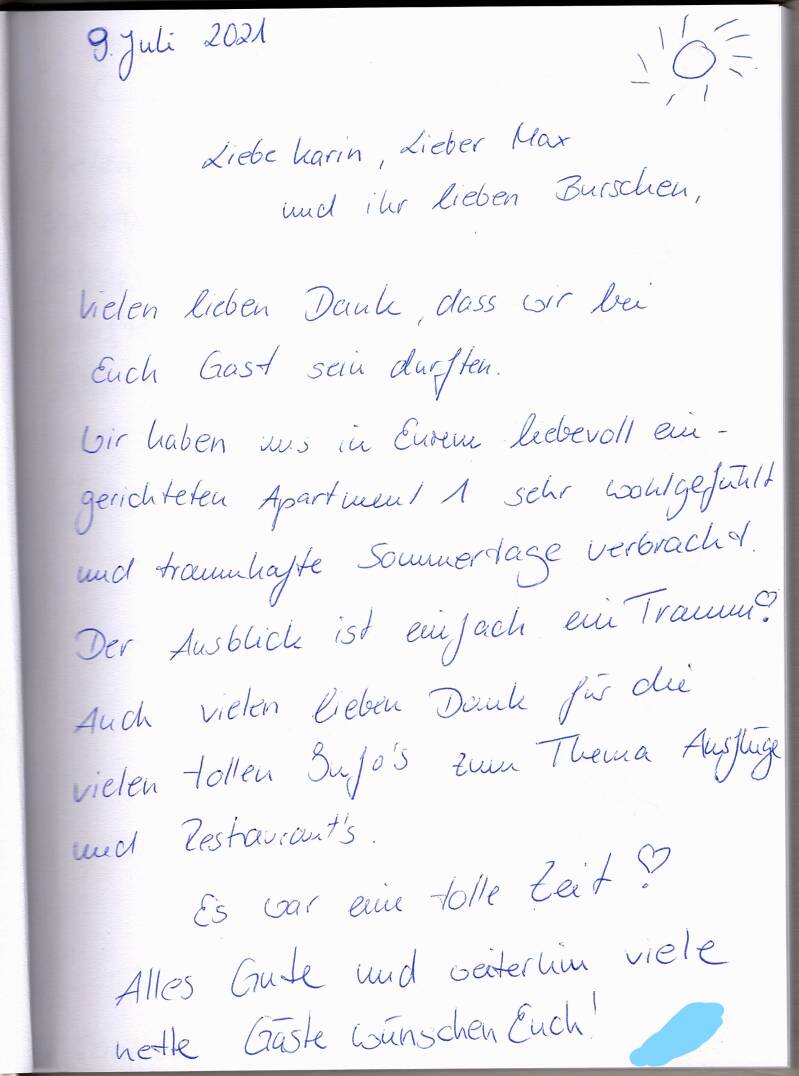 9. Juli 2021
Liebe Karin, Lieber Max
und ihr lieben Burschen,
Vielen lieben Dank, dass wir bei
Euch Gast sein durften.
Wir haben uns in Eurem liebevoll ein-
gerichteten Apartment 1 sehr wohlgefühlt
und traumhafte Sommertage verbracht.
Der Ausblick ist einfach ein Traum!
Auch vielen lieben Dank für die
vielen tollen Info's zum Thema Ausflüge
und Restaurant's.
Es war eine tolle Zeit!
Alles Gute und weiterhin viele
nette Gäste wünschen Euch!